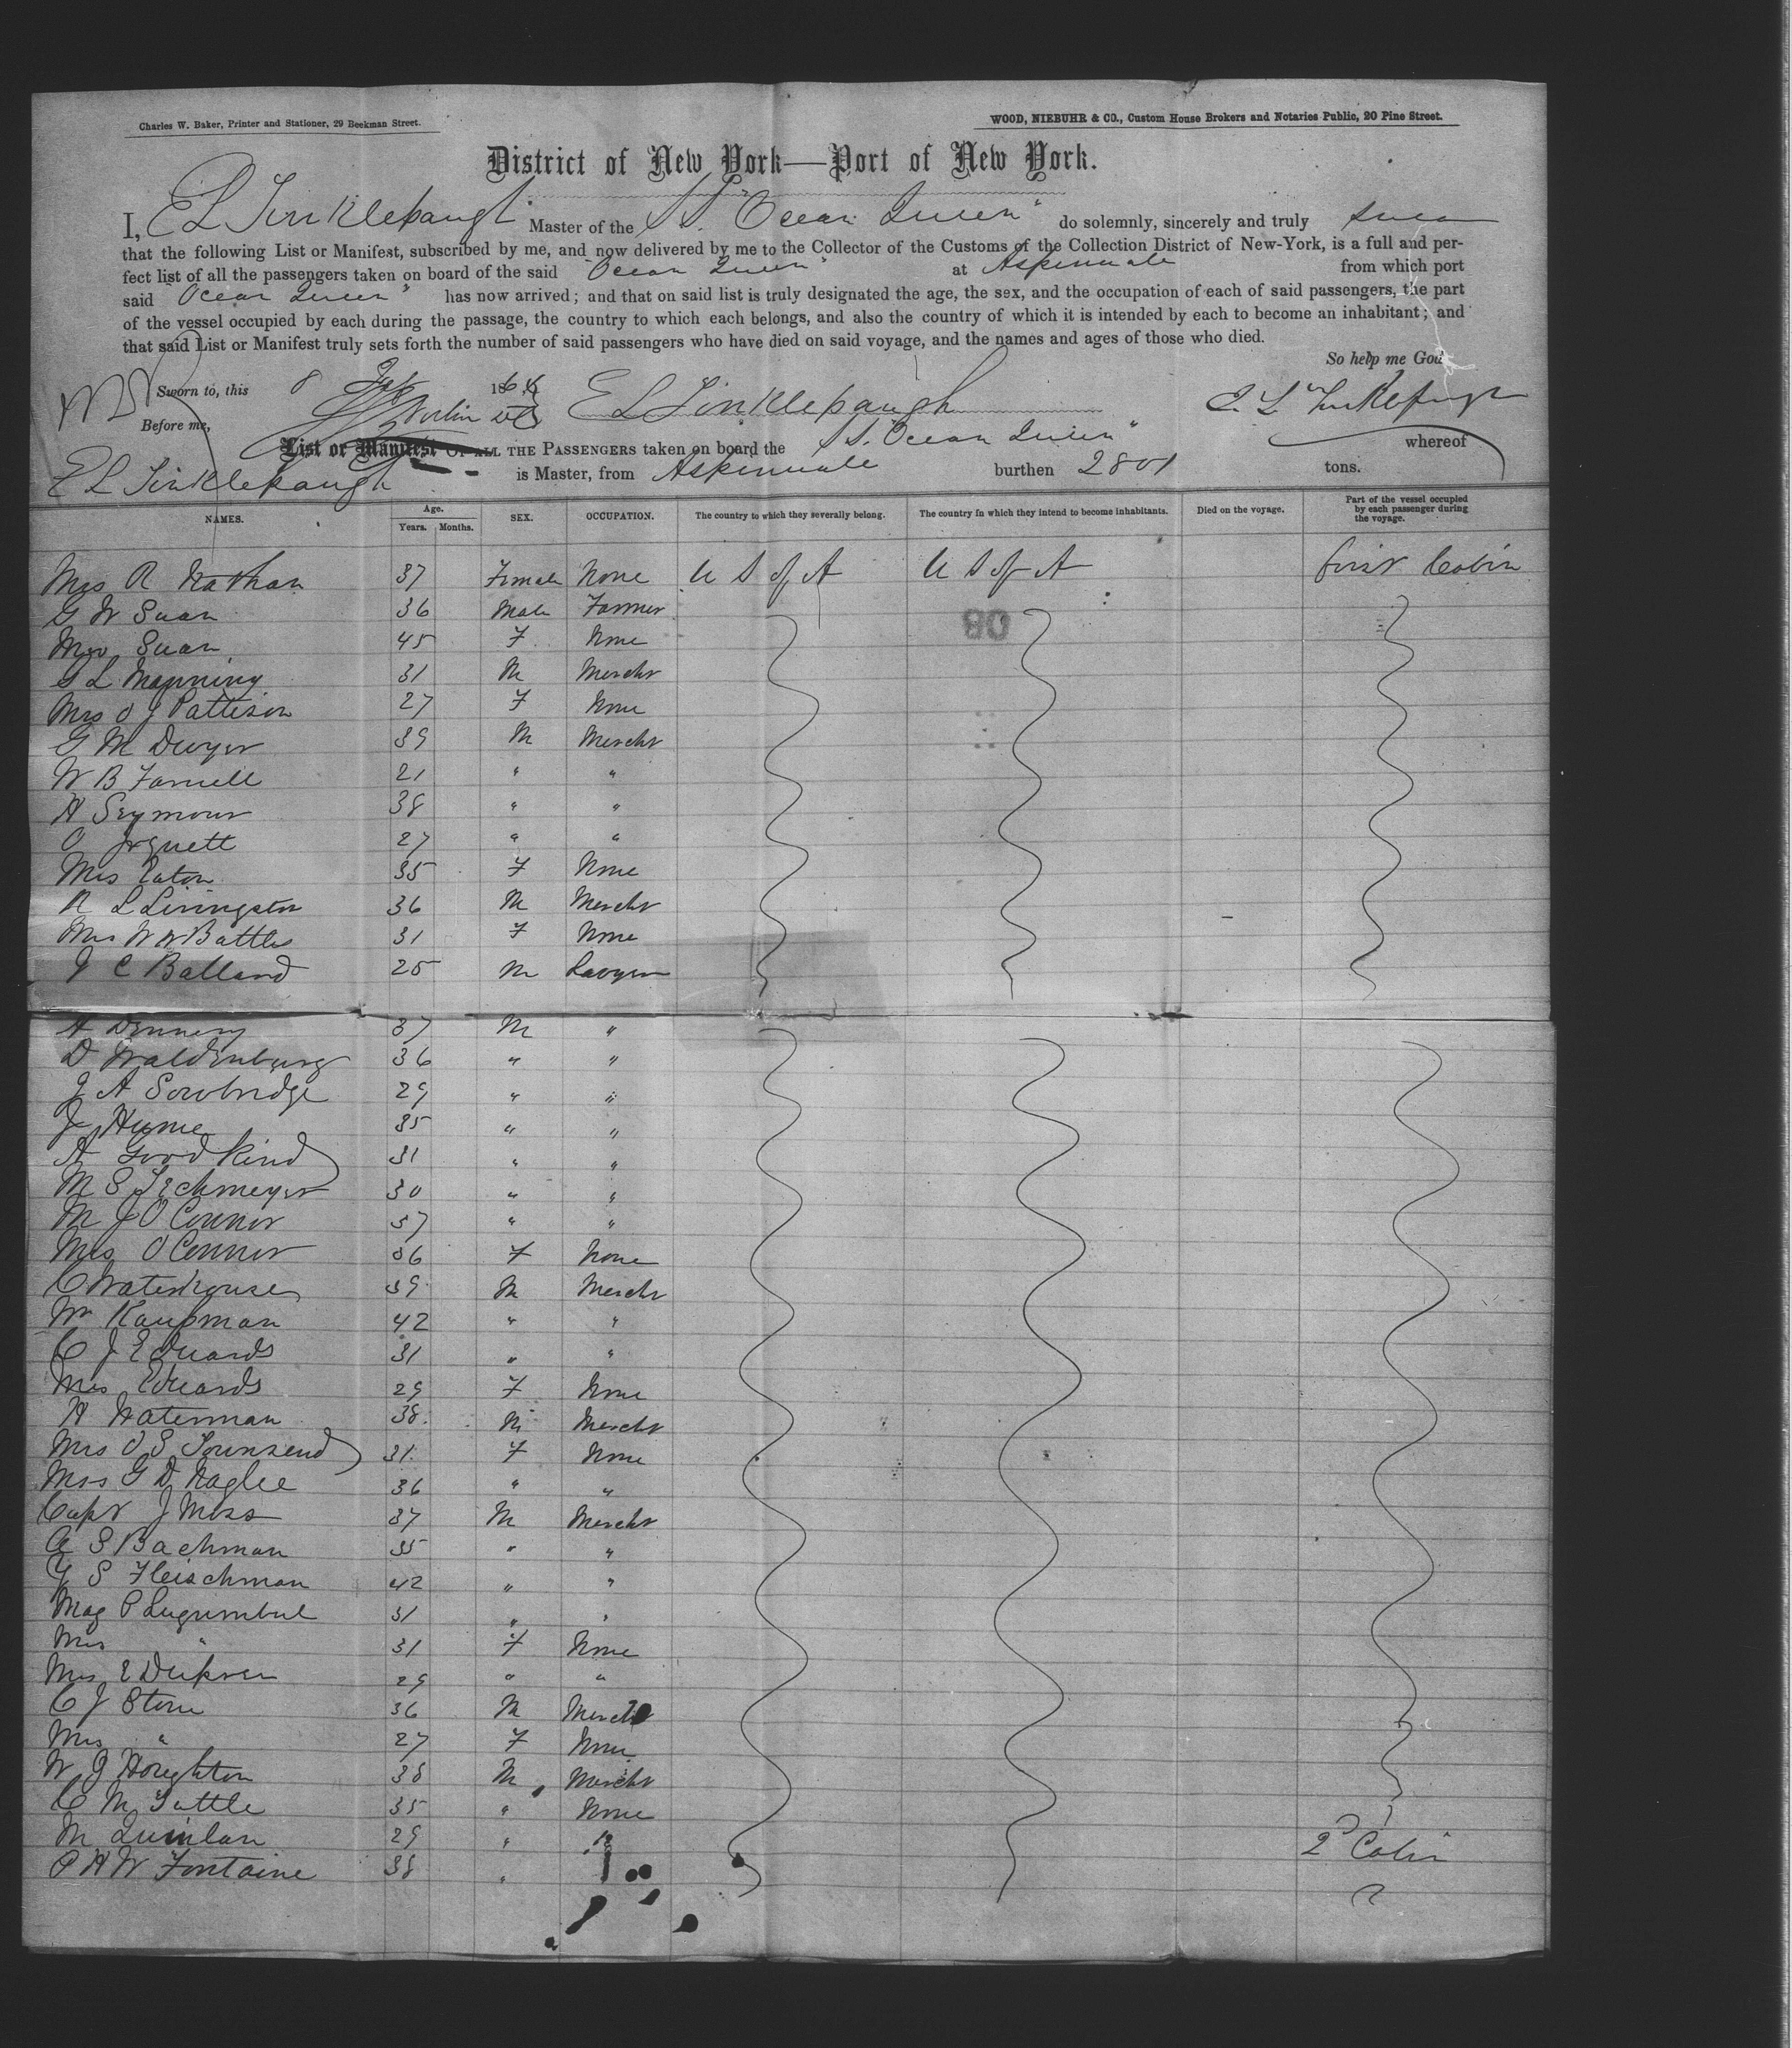 Charles W. Baker, Printer and Stationer, 29 Beekman Street.
WOOD, NIEBUHR & CO., Custom House Brokers and Notaries Public, 20 Pine Street.
District of New York—Port of New York.
I, E L Tinklepaugh Master of the SS. "Ocean Queen" do solemnly, sincerely and truly swear
that the following List or Manifest, subscribed by me, and now delivered by me to the Collector of the Customs of the Collection District of New-York, is a full and per-
fect list of all the passengers taken on board of the said "Ocean Queen" at Aspinwale from which port
said "Ocean Queen" has now arrived; and that on said list is truly designated the age, the sex, and the occupation of each of said passengers, the part
of the vessel occupied by each during the passage, the country to which each belongs, and also the country of which it is intended by each to become an inhabitant; and
that said List or Manifest truly sets forth the number of said passengers who have died on said voyage, and the names and ages of those who died.
So help me God
Sworn to, this 8 186 E L Tinklepaugh E. L. Tinklepaugh
Before me,
List or Manifest OF ALL THE PASSENGERS taken on board the SS. "Ocean Queen" whereof
E L Tinklepaugh is Master, from Aspinwale burthen 2801 tons.
NAMES. Age. Years. Months. SEX. OCCUPATION. The country to which they severally belong. The country in which they intend to become inhabitants. Died on the voyage. Part of the vessel occupied by each passenger during the voyage.
Mrs R Nathan 37 Female None U S of A U S of A first Cabin
G W Swan 36 Male Farmer
Mrs Swan 45 F None
G L Manning 31 M Mercht
Mrs O J Pattison 27 F None
G M Dwyer 39 M Mercht
W B Farnell 21 " "
H Seymour 38 " "
O 27 " "
Mrs Eaton 35 F None
R L Livingston 36 M Mercht
Mrs W W Battles 31 F None
J C Balland 25 M Lawyer
H Dennery 37 M "
D Waldenburg 36 " "
J A Sowbridge 29 " "
J Hume 35 " "
A Goodkind 31 " "
M S Techmeyer 30 " "
M J O Connor 37 " "
Mrs O Connor 36 F None
C Waterhouse 39 M Mercht
W Kaufman 42 " "
C J Edwards 31 " "
Mrs Edwards 29 F None
H Waterman 38 M Mercht
Mrs O S Townsend 31 F None
Mrs G D Naglee 36 " "
Capt J Mess 37 M Mercht
A S Bachman 35 " "
Y S Fleischman 42 " "
Mag P Lugumbul 31 " "
Mrs " 31 F None
Mrs E 29 " "
C J Stone 36 M Mercht
Mrs " 27 F None
W J Houghton 38 M Mercht
C M Tuttle 35 " None
M Quinlan 29 " " 2d Cabin
P H W Fontaine 38 "